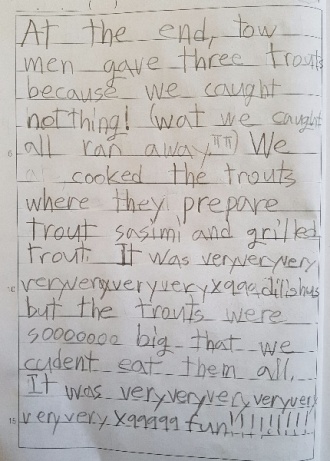 At the end, tow
men gave three trouts
because we caught
notthing! (wat we caught
all ran away.ㅠㅠ) We
cooked the trouts
where they prepare
trout sasimi and grilled
trout. It was veryveryvery
veryveryveryveryx9999dilishus
but the trouts were
sooooooo big that we
cudent eat them all.
It was veryveryveryveryvery
veryveryx99999 fun!!!!!!!!!!